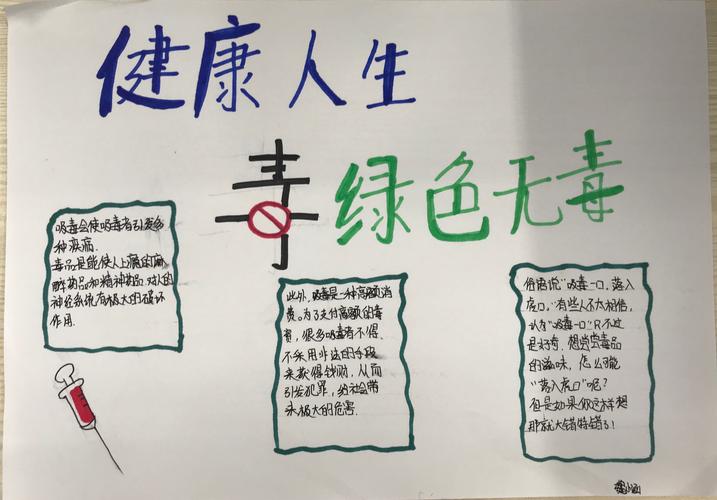 健康人生
毒
绿色无毒
吸毒会使吸毒者引发多
种疾病.
毒品是能使人上瘾的麻
醉药品和精神药品.对人的
神经系统有极大的破坏
作用.
此外,吸毒是一种高额消
费.为了支付高额的毒
资,很多吸毒者不得
不采用非法的手段
来获得钱财,从而
引发犯罪,给社会带
来极大的危害.
俗语说"吸毒一口,落入
虎口."有些人不大相信,
认为"吸毒一口"只不过
是好奇.想尝尝毒品
的滋味,怎么可能
"落入虎口"呢?
但是如果你这样想
那就大错特错了!